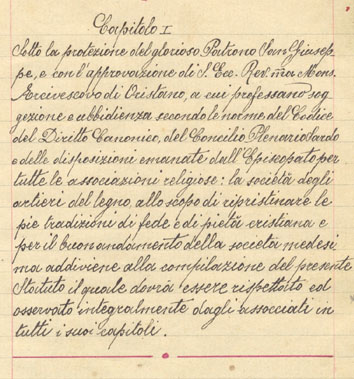 Capitolo I
Sotto la protezione del glorioso Patrono San Giusep-
pe, e con l'approvazione di S. Ecc. Rev.ma Mons.
Arcivescovo di Oristano, a cui professano sog-
gezione e ubbidienza secondo le norme del Codice
del Diritto Canonico, del Concilio Plenario Sardo
e delle disposizioni emanate dall'Episcopato per
tutte le associazioni religiose: la società degli
artieri del legno, allo scopo di ripristinare le
pie tradizioni di fede e di pietà cristiana e
per il buon andamento della società medesi
ma addiviene alla compilazione del presente
Statuto il quale dovrà essere rispettato ed
osservato integralmente dagli associati in
tutti i suoi capitoli.